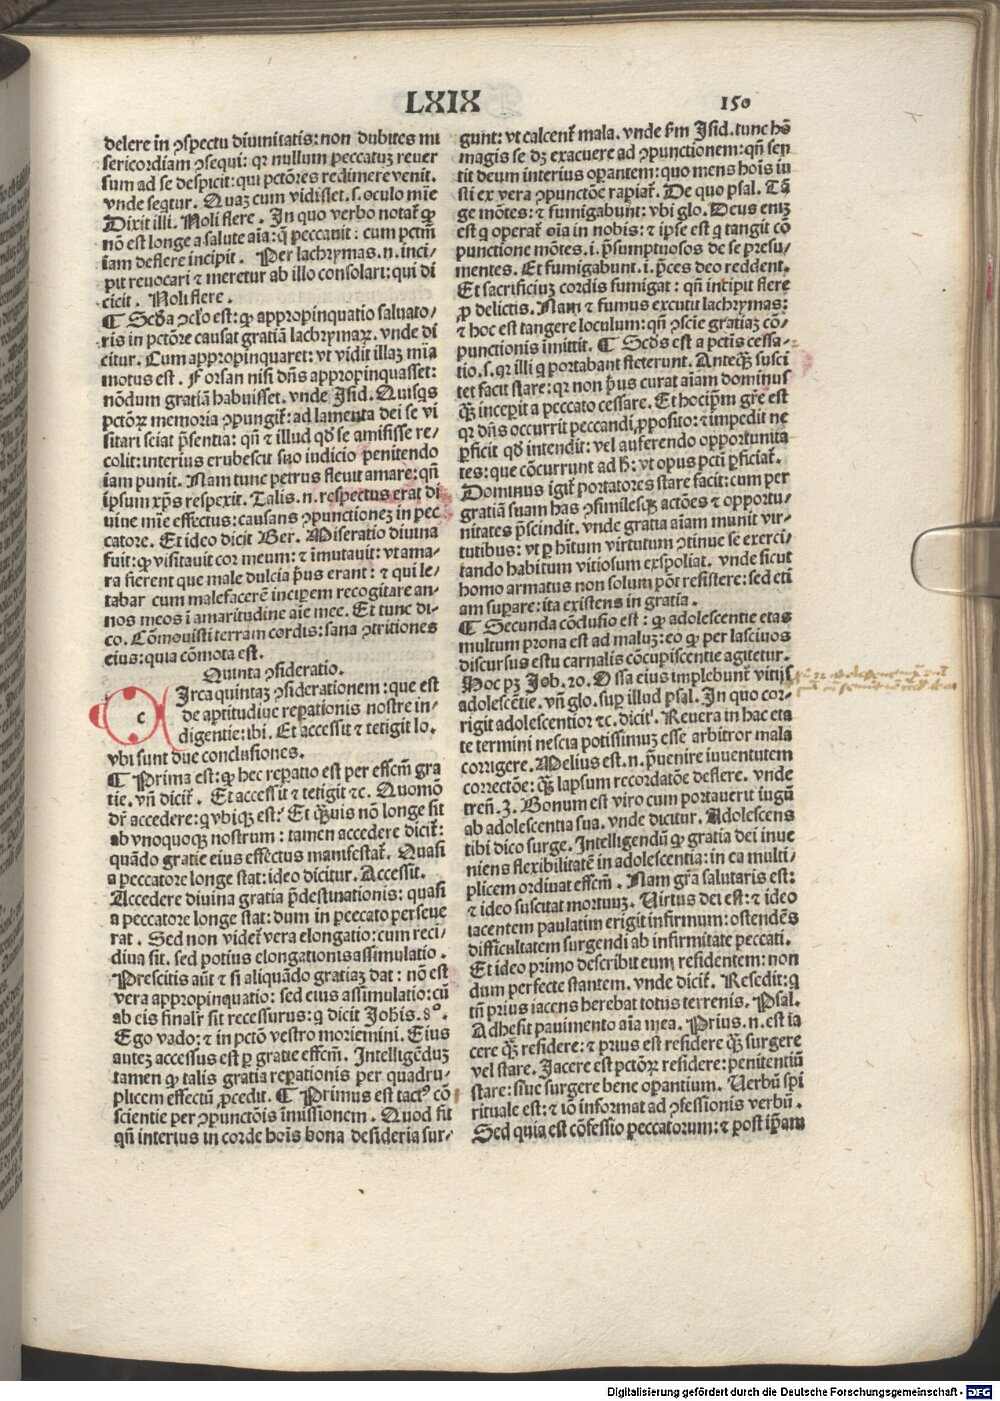 LXIX
150
delere in ꝯspectu diuinitatis: non dubites mi
sericordiam ꝯsequi: qꝛ nullum peccatuꝫ reuer
sum ad se despicit: qui pctōres redimere venit.
vnde seqtur. Quaꝫ cum vidisset .s. oculo mīe
Dixit illi. Noli flere. In quo verbo notat᷑ ꝙ
nō est longe a salute aīa: q̄ peccauit: cum pctm̄
iam deflere incipit. Per lachrymas .n. inci/
pit reuocari ⁊ meretur ab illo consolari: qui di
cicit. Noli flere.
¶ Scḋa ꝯclo est: ꝙ appropinquatio saluato/
ris in pctōre causat gratiā lachrymaꝝ. vnde di
citur. Cum appropinquaret: vt vidit illaꝫ mīa
motus est. Forsan nisi dn̄s appropinquasset:
nōdum gratiā habuisset. vnde Isid. Quisqs
pctōꝝ memoria ꝯpungit᷑: ad lamenta dei se vi
sitari sciat p̄sentia: qn̄ ⁊ illud qḋ se amisisse re/
colit: interius erubescit suo iudicio penitendo
iam punit. Nam tunc petrus fleuit amare: qn̄
ipsum xp̄s respexit. Talis .n. respectus erat di
uine mīe effectus: causans ꝯpunctioneꝫ in pec
catore. Et ideo dicit Ber. Miseratio diuina
fuit: ꝙ visitauit cor meum: ⁊ īmutauit: vt ama/
ra fierent que male dulcia p̄us erant: ⁊ qui le/
tabar cum malefacerē inciperem recogitare an/
nos meos ī amaritudine aīe mee. Et tunc di/
co. Cōmouisti terram cordis: sana ꝯtritiones
eius: quia cōmota est.
Quinta ꝯsideratio.
c
Irca quintaꝫ ꝯsiderationem: que est
de aptitudiue repationis nostre in/
digentie: ibi. Et accessit ⁊ tetigit lo.
vbi sunt due conclusiones.
¶ Prima est: ꝙ hec repatio est per effcm̄ gra
tie. vn̄ dicit᷑. Et accessit ⁊ tetigit ⁊c. Quomō
dr̄ accedere: q vbiqꝫ est? Et q̄ꝫuis nō longe sit
ab vnoquoqꝫ nostrum: tamen accedere dicit᷑:
quādo gratie eius effectus manifestat᷑. Quasi
a peccatore longe stat: ideo dicitur. Accessit.
Accedere diuina gratia p̄destinationis: quasi
a peccatore longe stat: dum in peccato perseue
rat. Sed non videt᷑ vera elongatio: cum reci/
diua sit. sed potius elongationis assimulatio.
Prescitis aūt ⁊ si aliquādo gratiaꝫ dat: nō est
vera appropinquatio: sed eius assimulatio: cū
ab eis finalr̄ sit recessurus: q dicit Johis. 8º.
Ego vado: ⁊ in pctō vestro moriemini. Eius
auteꝫ accessus est ꝑ gratie effcm̄. Intelligēduꝫ
tamen ꝙ talis gratia repationis per quadru/
plicem effectū ꝓcedit. ¶ Primus est tactꝰ cō
scientie per ꝯpunctōis īmissionem. Quod fit
qn̄ interius in corde hoīs bona desideria sur/
gunt: vt calcent᷑ mala. vnde ẜm Isid. tunc hō
magis se dꝫ exacuere ad ꝯpunctionem: qn̄ sen
tit deum interius opantem: quo mens hoīs iu
sti ex vera ꝯpunctōe rapiat᷑. De quo psal. Tā
ge mōtes: ⁊ fumigabunt: vbi glo. Deus eniꝫ
est q operat᷑ oīa in nobis: ⁊ ipse est q tangit cō
punctione mōtes .i. p̄sumptuosos de se presu/
mentes. Et fumigabunt .i. p̄ces deo reddent.
Et sacrificiuꝫ cordis fumigat: qn̄ incipit flere
ꝓ delictis. Nam ⁊ fumus excutit lachrymas:
⁊ hoc est tangere loculum: qn̄ ꝯscie gratiaꝫ cō/
punctionis īmittit. ¶ Scḋs est a pctīs cessa/
tio .s. qꝛ illi q portabant steterunt. Anteq̄ꝫ susci
tet facit stare: qꝛ non p̄us curat aīam dominus
q̄ꝫ inceperit a peccato cessare. Et hoc ipm̄ gr̄e est
qꝛ dn̄s occurrit peccandi ꝓposito: ⁊ impedit ne
ꝑficit qḋ intendit: vel auferendo opportunita
tes: que cōcurrunt ad h̄: vt opus pcti ꝑficiat᷑.
Dominus igit᷑ portatores stare facit: cum per
gratiā suam has ꝯsimilesqꝫ actōes ⁊ opportu/
nitates p̄scindit. vnde gratia aīam munit vir/
tutibus: vt ꝑ hītum virtutum ꝯtinue se exerci/
tando habitum vitiosum exspoliat. vnde sicut
homo armatus non solum pōt resistere: sed eti
am supare: ita existens in gratia.
¶ Secunda cōclusio est: ꝙ adolescentie etas
multum prona est ad maluꝫ: eo ꝙ per lasciuos
discursus estu carnalis cōcupiscentie agitetur.
Hoc pꝫ Job. 20. Ossa eius implebunt᷑ vitijs
adolescētie. vn̄ glo. suꝑ illud psal. In quo cor/
rigit adolescentior ⁊c. dicit᷑. Reuera in hac eta
te termini nescia potissimuꝫ esse arbitror mala
corrigere. Melius est .n. p̄uenire iuuentutem
correctōe: q̄ꝫ lapsum recordatōe deflere. vnde
tren̄. 3. Bonum est viro cum portauerit iugū
ab adolescentia sua. vnde dicitur. Adolescens
tibi dico surge. Intelligendū ꝙ gratia dei inue
niens flexibilitatē in adolescentia: in ea multi/
plicem ordinat effcm̄. Nam gr̄a salutaris est:
⁊ ideo suscitat mortuuꝫ. Virtus dei est: ⁊ ideo
iacentem paulatim erigit infirmum: ostendēs
difficultatem surgendi ab infirmitate peccati.
Et ideo primo describit eum residentem: non
dum perfecte stantem. vnde dicit᷑. Resedit: q
tn̄ prius iacens herebat totus terrenis. Psal.
Adhesit pauimento aīa mea. Prius .n. est ia
cere q̄ꝫ residere: ⁊ prius est residere q̄ꝫ surgere
vel stare. Jacere est pctōꝝ residere: penitentiū
stare: siue surgere bene opantium. Verbū spi
rituale est: ⁊ iō informat ad ꝯfessionis verbū.
Sed quia est cōfessio peccatorum: ⁊ post ip̄am
Digitalisierung gefördert durch die Deutsche Forschungsgemeinschaft - DFG